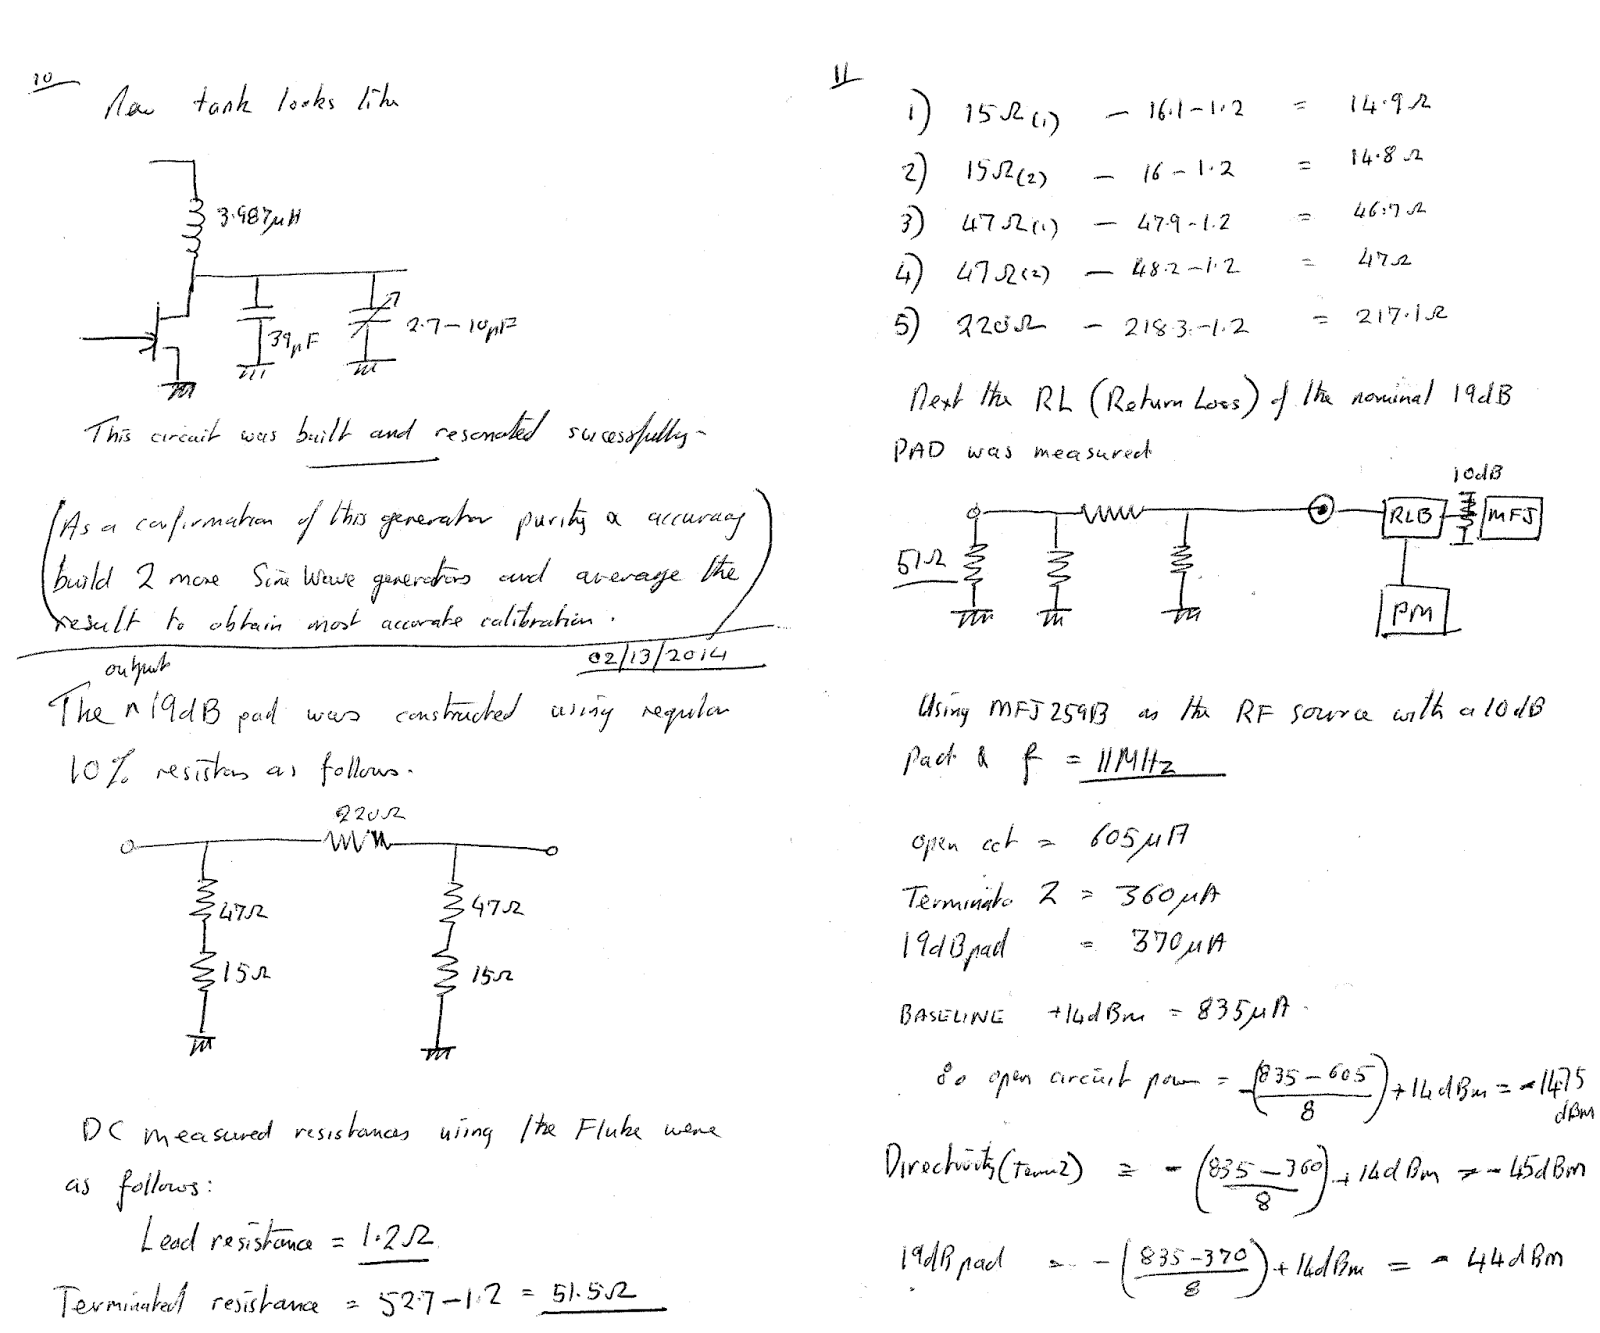 10
New tank looks like
3.987µH
39pF
2.7-10pF
This circuit was built and resonated sucessfully-
(As a confirmation of this generator purity & accuracy
build 2 more Sine Wave generators and average the
result to obtain most accurate calibration.)
02/13/2014
output
The ^ 19dB pad was constructed using regular
10% resistors as follows.
220Ω
47Ω
47Ω
15Ω
15Ω
DC measured resistances using the Fluke were
as follows:
Lead resistance = 1.2Ω
Terminated resistance = 52.7-1.2 = 51.5Ω
11
1) 15Ω(1) - 16.1-1.2 = 14.9Ω
2) 15Ω(2) - 16-1.2 = 14.8Ω
3) 47Ω(1) - 47.9-1.2 = 46.7Ω
4) 47Ω(2) - 48.2-1.2 = 47Ω
5) 220Ω - 218.3-1.2 = 217.1Ω
Next the RL (Return Loss) of the nominal 19dB
PAD was measured
10dB
RLB
MFJ
51Ω
PM
Using MFJ259B as the RF source with a 10dB
pad & f = 11MHz
open cct = 605µA
Terminator 2 = 360µA
19dBpad = 370µA
BASELINE +14dBm = 835µA.
So open circuit power = -(835-605/8)+14dBm = -14.75
dBm
Directivity (Term2) = -(835-360/8)+14dBm = -45dBm
19dB pad = -(835-370/8)+14dBm = -44dBm